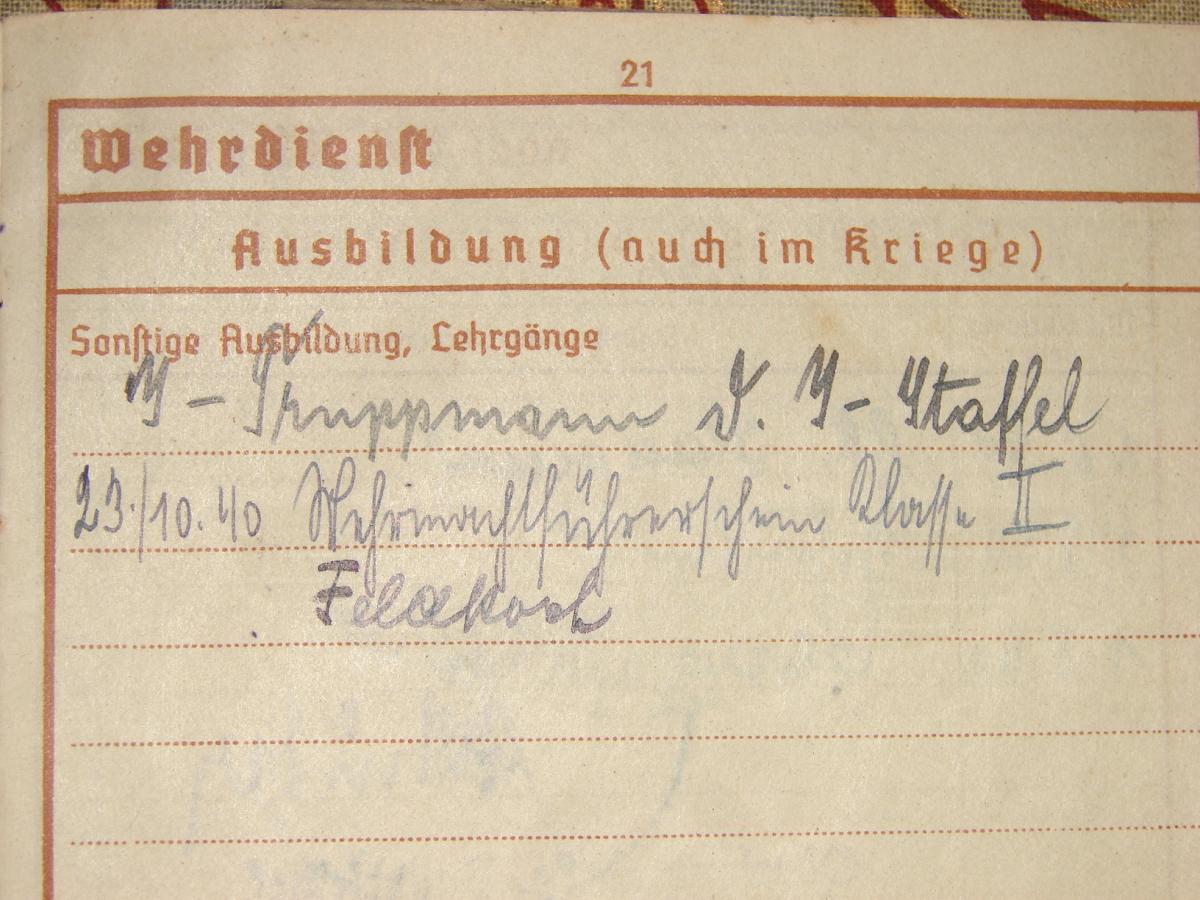 21
Wehrdienst
Ausbildung (auch im Kriege)
Sonstige Ausbildung, Lehrgänge
Truppmann d. Staffel
23./10. 40 Wehrmachtführerschein Klasse II
Feldkoch